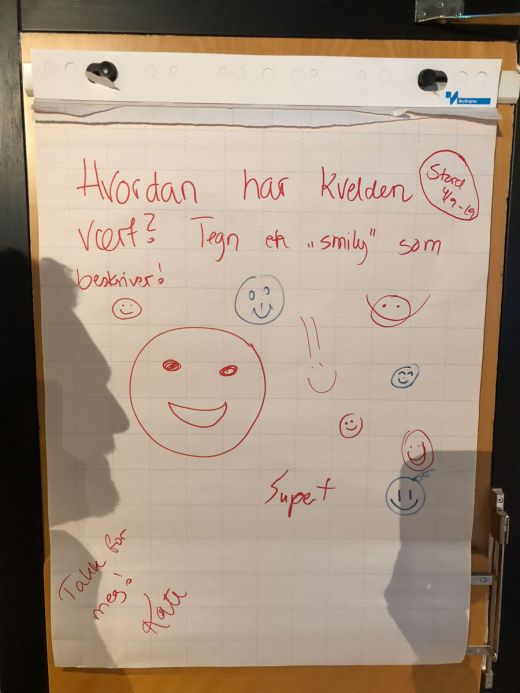 Hvordan har kvelden
vært? Tegn en „smily" som
beskriver!
Stord
4/9-19
Supert
Takk for
meg!
Kate